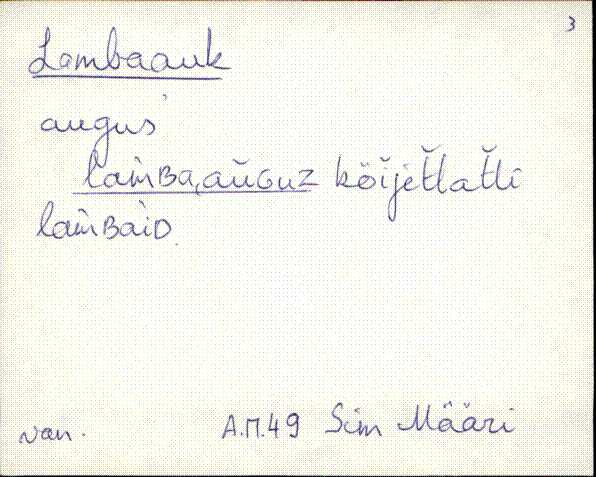 3
Lambaauk
augus
lam̀ʙa,aŭɢuz köĭjet̆lat̆ti
lam̀ʙaìᴅ
van. A.Π.49 Sim Määri